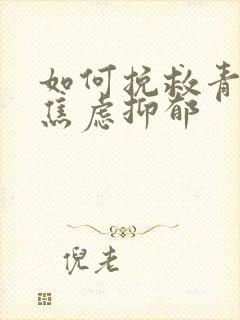 如何挽救青
焦虑抑郁
倪老